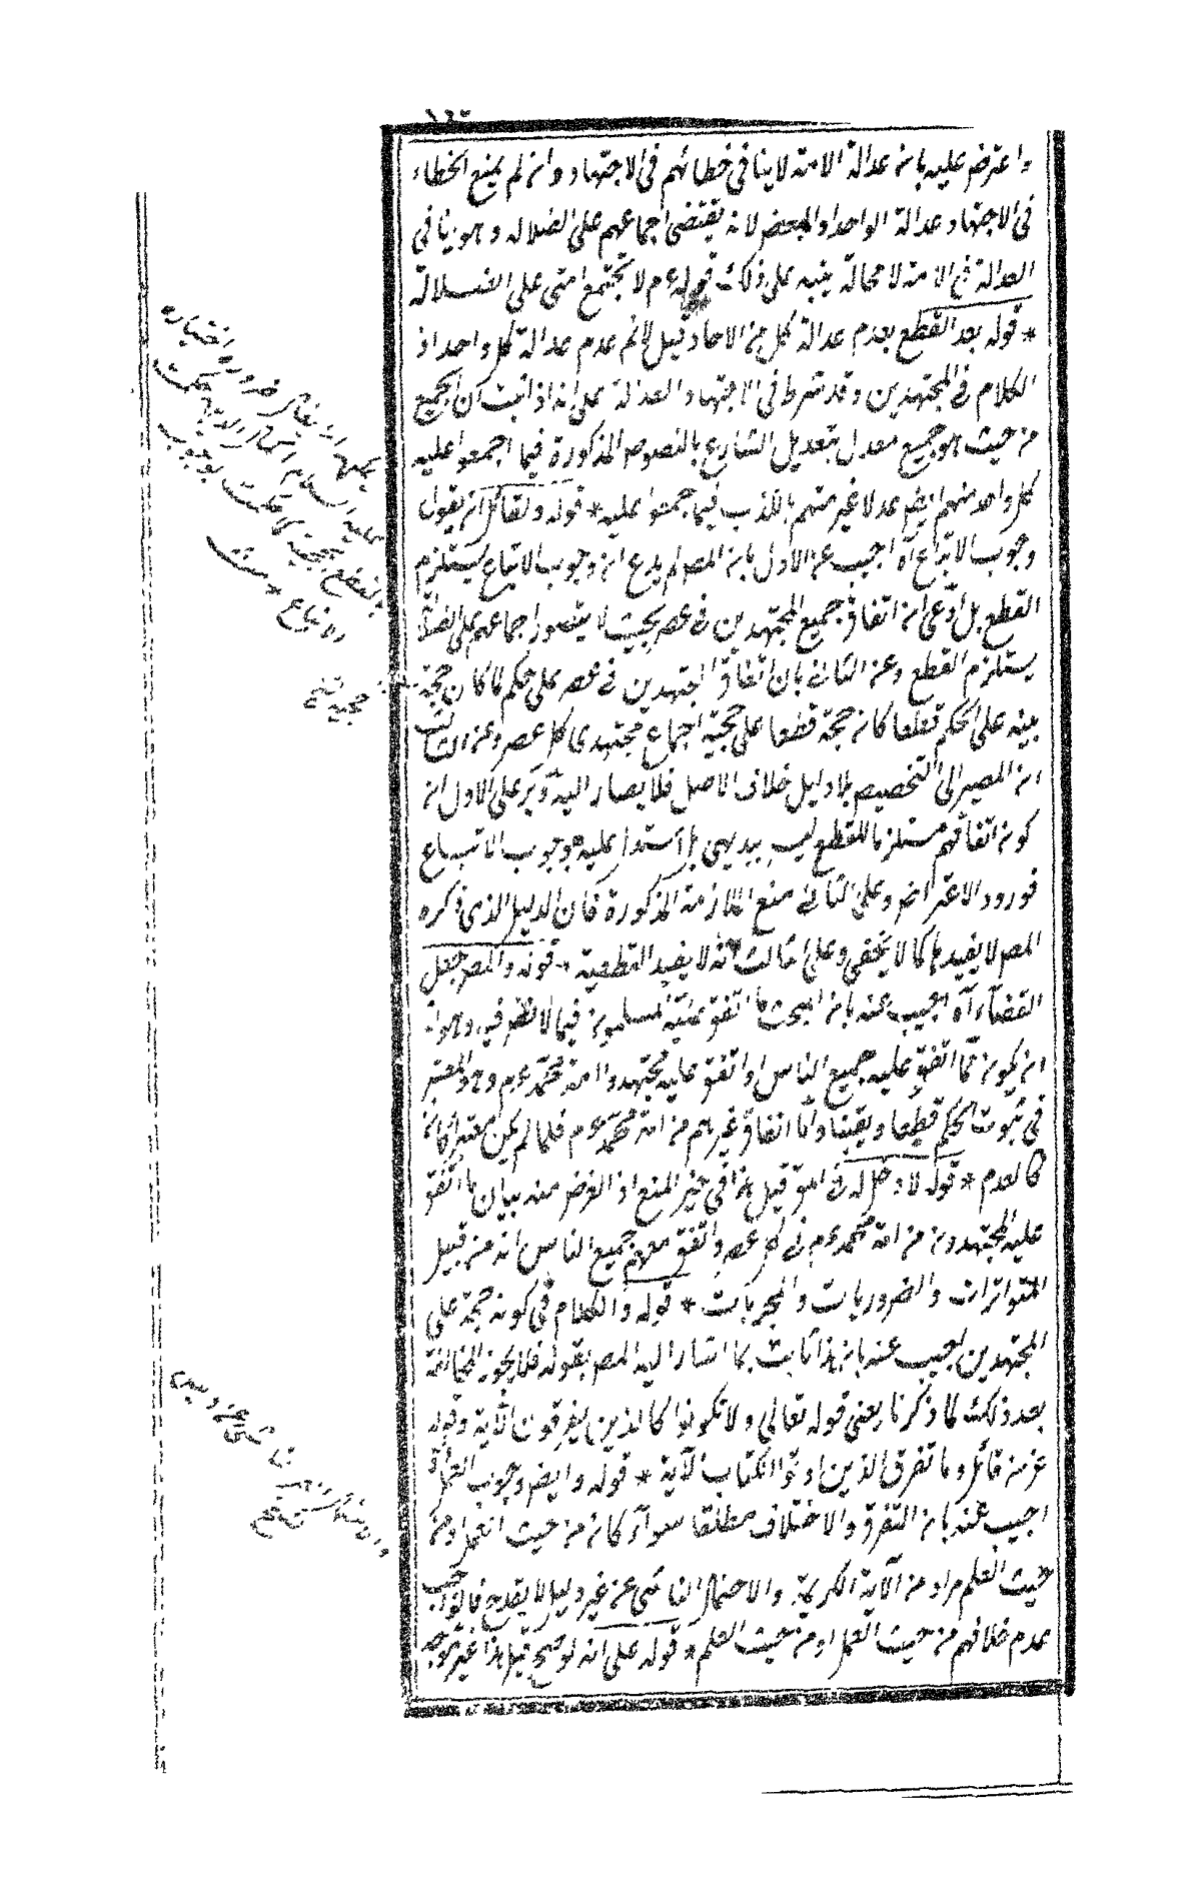 واعترض عليه بان عدالة الامة لا ينافى خطائهم فى الاجتهاد وان لم يمنع الخطاء
فى الاجتهاد عدالة الواحد او البعض لانه يقتضى اجماعهم على الضلاله وهو ينافى
العدالة فى الامة لا محالة ينبه على ذلك قوله عم لا تجتمع امتى على الضلالة
* قوله بعد القطع بعدم عدالة كل من الاحاد قيل لانم عدم عدالة كل واحد اذ
الكلام فى المجتهدين وقد شرط فى الاجتهاد العدالة على انه اذا ثبت ان الجميع
من حيث هو جميع معدل بتعديل الشارع بالنصوص المذكورة فيما اجمعوا عليه
كل واحد منهم ايض عدلا غير متهم بالكذب فيما جمعوا عليه * قوله ولقائل ان يقول
وجوب الاتباع آه اجيب عن الاول بان المص لم يدع ان وجوب الاتباع يستلزم
القطع بل ادعى ان اتفاق جميع المجتهدين فى عصر بحيث لا يتصور اجماعهم على الضلالة
يستلزم القطع وعن الثانى بان اتفاق المجتهدين فى عصر على حكم لما كان حجة
بينه على الحكم قطعا كان حجة قطعا على حجية اجماع مجتهدى كل عصر وعن الثالث
ان المصير الى التخصيص بلا دليل خلاف الاصل فلا يصار اليه ويرد على الاول ان
كون اتفاقهم مستلزما للقطع ليس ببديهى بل استدل عليه بوجوب الاتباع
فورود الاعتراض وعلى الثانى منع الملازمة المذكورة فان الدليل الذى ذكره
المص لا يفيدها كما لا يخفى وعلى الثالث انه لا يفيد القطعية * قوله والمص جعل
القضاء آه اجيب عنه بان البحث ما اتفق عليه المسلمون فيما لا نظر فيه وهو اما
ان يكون مما اتفق عليه جميع الناس او اتفق عليه مجتهدوا امة محمد عم وهو المعتبر
فى ثبوت الحكم قطعا ويقينا واما اتفاق غيرهم من امة محمد عم فلما لم يكن معتبرا كان
كالعدم * قوله لا دخل له فى امتى قيل هذا فى حيز المنع اذ الغرض منه بيان ما اتفق
عليه المجتهدون من امة محمد عم فى كل عصر واتفق معهم جميع الناس انه من قبيل
المتواترات والضروريات والمجربات * قوله والكلام فى كونه حجة على
المجتهدين اجيب عنه بان هذا ثابت بما اشار اليه المص بقوله فلا يجوز المخالفة
بعد ذلك لما ذكرنا يعنى قوله تعالى ولا تكونوا كالذين تفرقوا الآية وقوله
عز من قائل وما تفرق الذين اوتوا الكتاب الآية * قوله وايض وجوب العمل آه
اجيب عنه بان التفرق والاختلاف مطلقا سواء كان من حيث العمل او من
حيث العلم مراد من الآية الكريمة والاحتمال الناشى عن غير دليل لا يقدح فالواجب
عدم خلافهم من حيث العمل او من حيث العلم * قوله على انه لو صح قيل هذا غير موجه